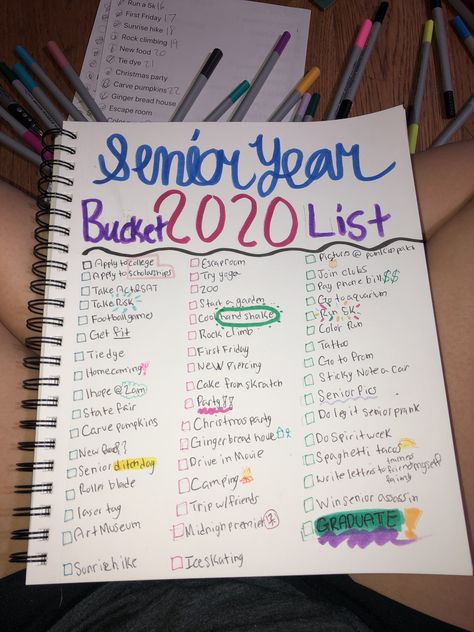 Run a 5k 16
First Friday 17
Sunrise hike 18
Rock climbing 19
New food 20
Tie dye 21
Christmas party
Carve pumpkins 22
Ginger bread house
Escape room
Senior Year
Bucket 2020 List
Apply to college
Apply to scholarships
Take ACT & SAT
Take Risk
Football game
Get fit
Tie dye
Homecoming
Ihope @ 2am
State fair
Carve pumpkins
New food?
Senior ditch day
Roller blade
laser tag
Art Museum
Sunrise hike
Escaroom
Try yoga
ZOO
Start a garden
Cool hand shake
Rock climb
First Friday
New Piercing
Cake from skratch
Party!!
Christmas party
Ginger bread house
Drive in Movie
Camping
Trip w/ friends
Midnigh premier
Ice skating
Picture @ pumkin patch
Join clubs
Pay phone bill $$
Go to aquarium
Run 5K
Color run
Tattoo
Go to Prom
Sticky Note a Car
Senior Pics
Do legit senior prank
Do Spirit week
Spaghetti tacos
write letters to friends myself family
Win senior assassin
GRADUATE!